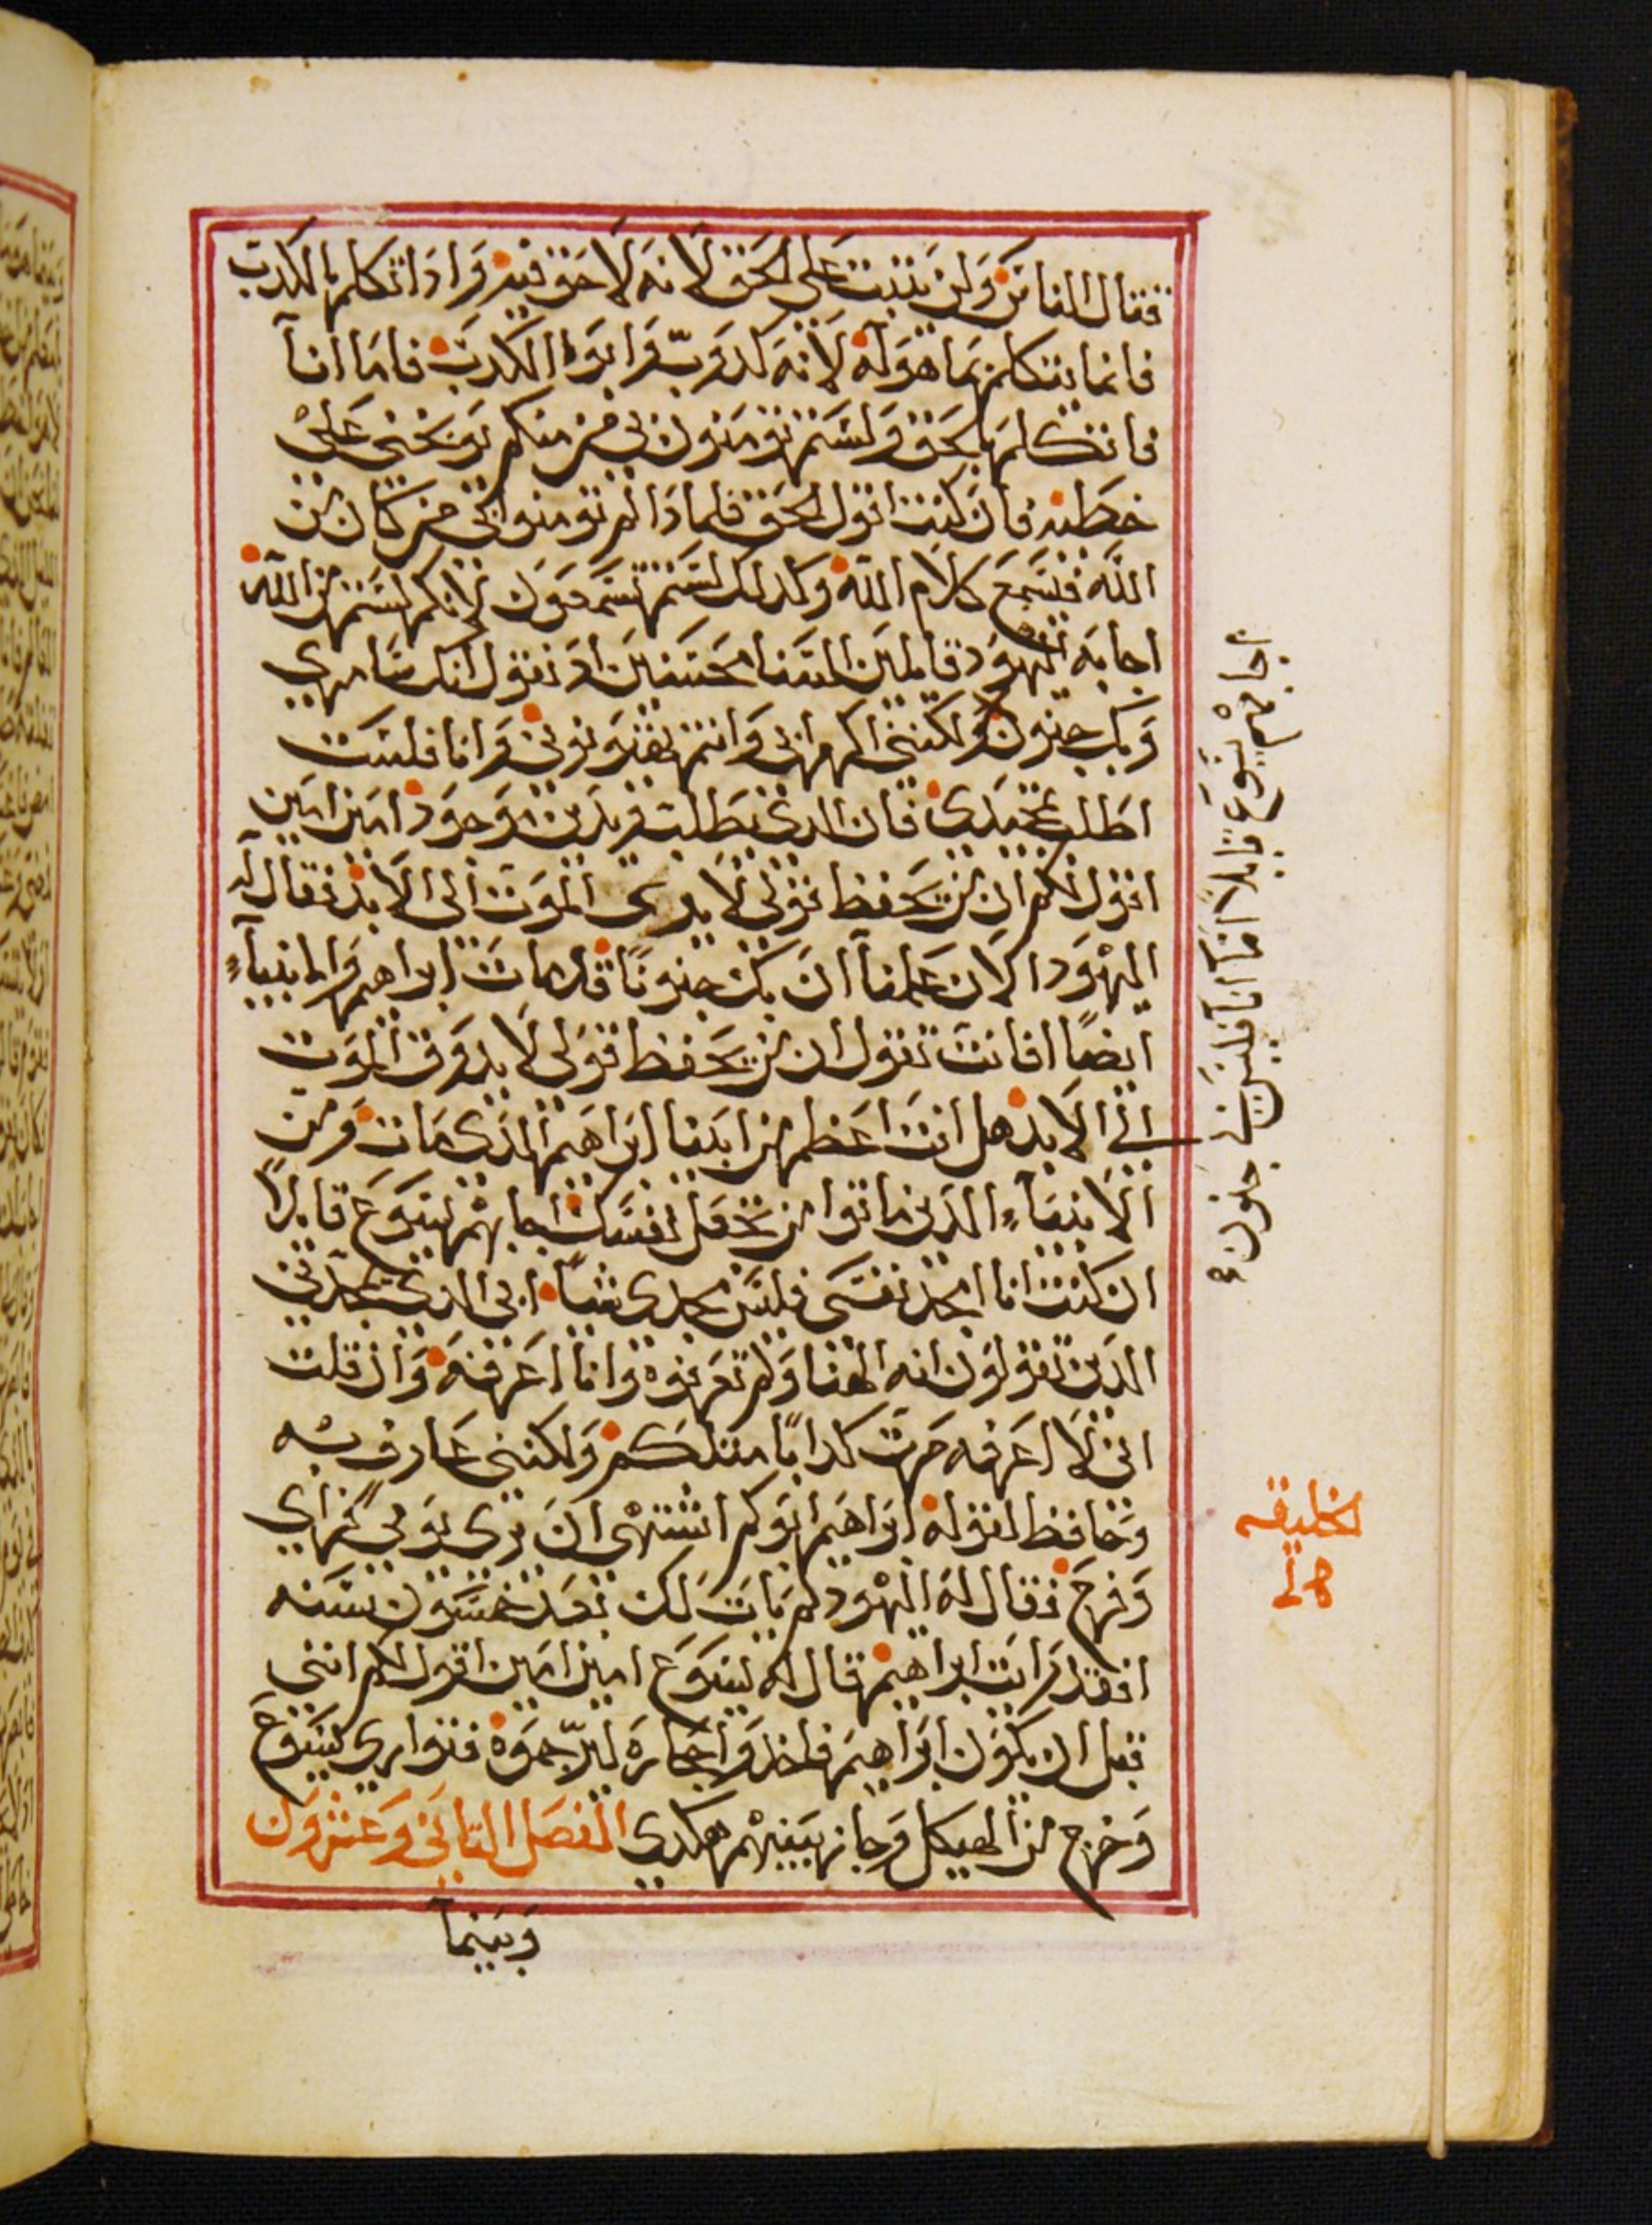 فقال الناس ولن يثبت على الحق لانه لا حق فيه واذا تكلم بالكدب
فانما يتكلم بما هو له لانه كدوب وابوا الكدب فاما انا
فاتكلم بالحق ولستم تومنون بي من منكم يوبخني على
خطيه فان كنت اقول الحق فلمادا لم تومنوا بي من كان من
الله فيسمع كلام الله وكدلك لستم تسمعون لانكم لستم من الله
اجابه اليهود قايلين السنا محسنين اد نقول انك سامري
وبك جنون ولكنني اكرم ابي وانتم تفترونوني وانا فلست
اطلب تمجيدي فان الدي يطلب ويدين موجود امين امين
اقول لكم ان من يحفظ قولي لا يرى الموت الى الابد فقال له
اليهود الان علمنا ان بك جنونا قد مات ابراهيم والانبياء
ايضا افانت تقول ان من يحفظ قولي لا يدوق الموت
الى الابد هل انت اعظم من ابينا ابراهيم الدي مات ومن
الانبياء الدين ماتوا من تجعل نفسك اجابهم يسوع قايلا
ان كنت انا امجد نفسي فليس مجدي شيا ابي الدي يمجدني
الدين تقولون انه الهنا ولم تعرفوه وانا اعرفه وان قلت
اني لا اعرفه صرت كدابا مثلكم ولكنني عارف به
وحافظ لقوله ابراهيم ابوكم اشتهى ان يرى يومي فراي
وفرح فقال له اليهود لم يات لك بعد خمسون سنه
افقد رايت ابراهيم قال لهم يسوع امين امين اقول لكم انني
قبل ان يكون ابراهيم فاخدوا حجاره ليرجموه فتوارى يسوع
وخرج من الهيكل وجاز بينهم هكدي الفصل التاني وعشرون
وبينما
اجابهم يسوع قايلا اما انا فليس بي جنون
الخليقه